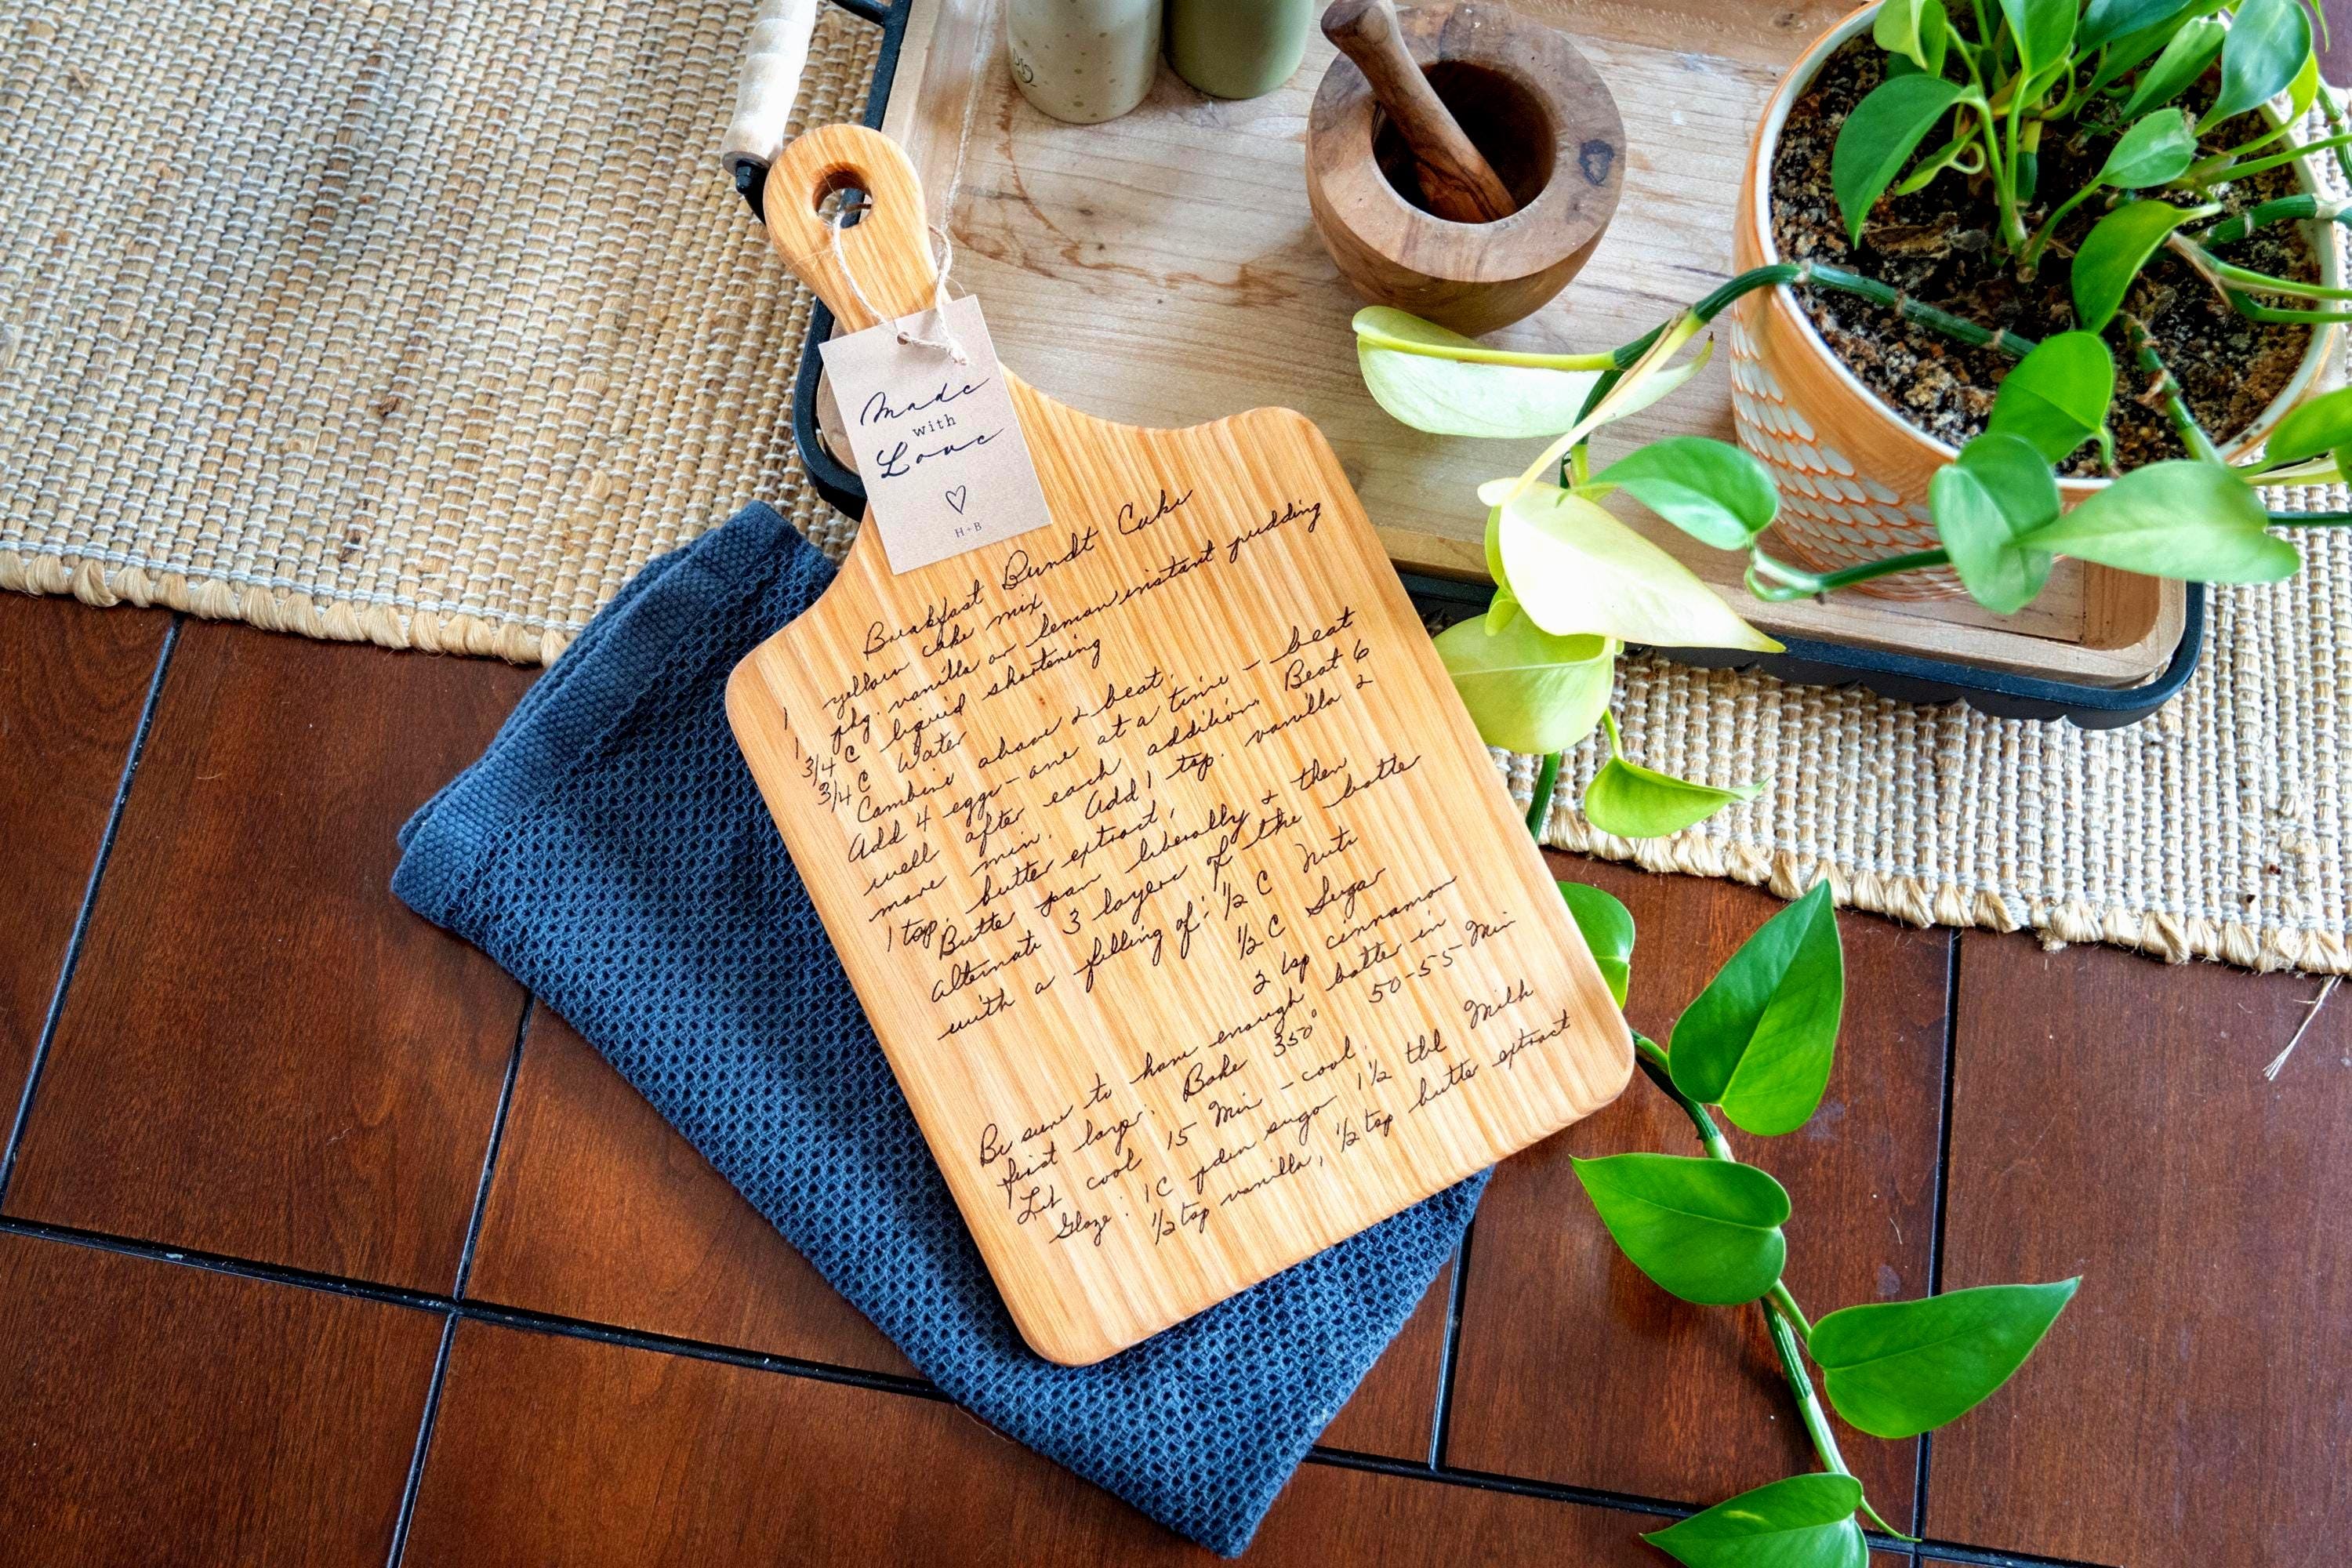 Made
with
Love
H+B
Breakfast Bundt Cake
1 yellow cake mix
1 pkg. vanilla or lemon instant pudding
3/4 C liquid shortening
3/4 C Water
Combine above & beat.
Add 4 eggs - one at a time - beat
well after each addition. Beat 6
more min. Add 1 tsp. vanilla &
1 tsp. butter extract.
Butter pan liberally & then
alternate 3 layers of the batter
with a filling of: 1/2 C Nuts
1/2 C Sugar
2 tsp cinnamon
Be sure to have enough batter in
first layer. Bake 350° 50-55 Min
Let cool 15 Min - cool.
Glaze: 1 C pdn sugar 1 1/2 tbl Milk
1/2 tsp vanilla, 1/2 tsp butter extract